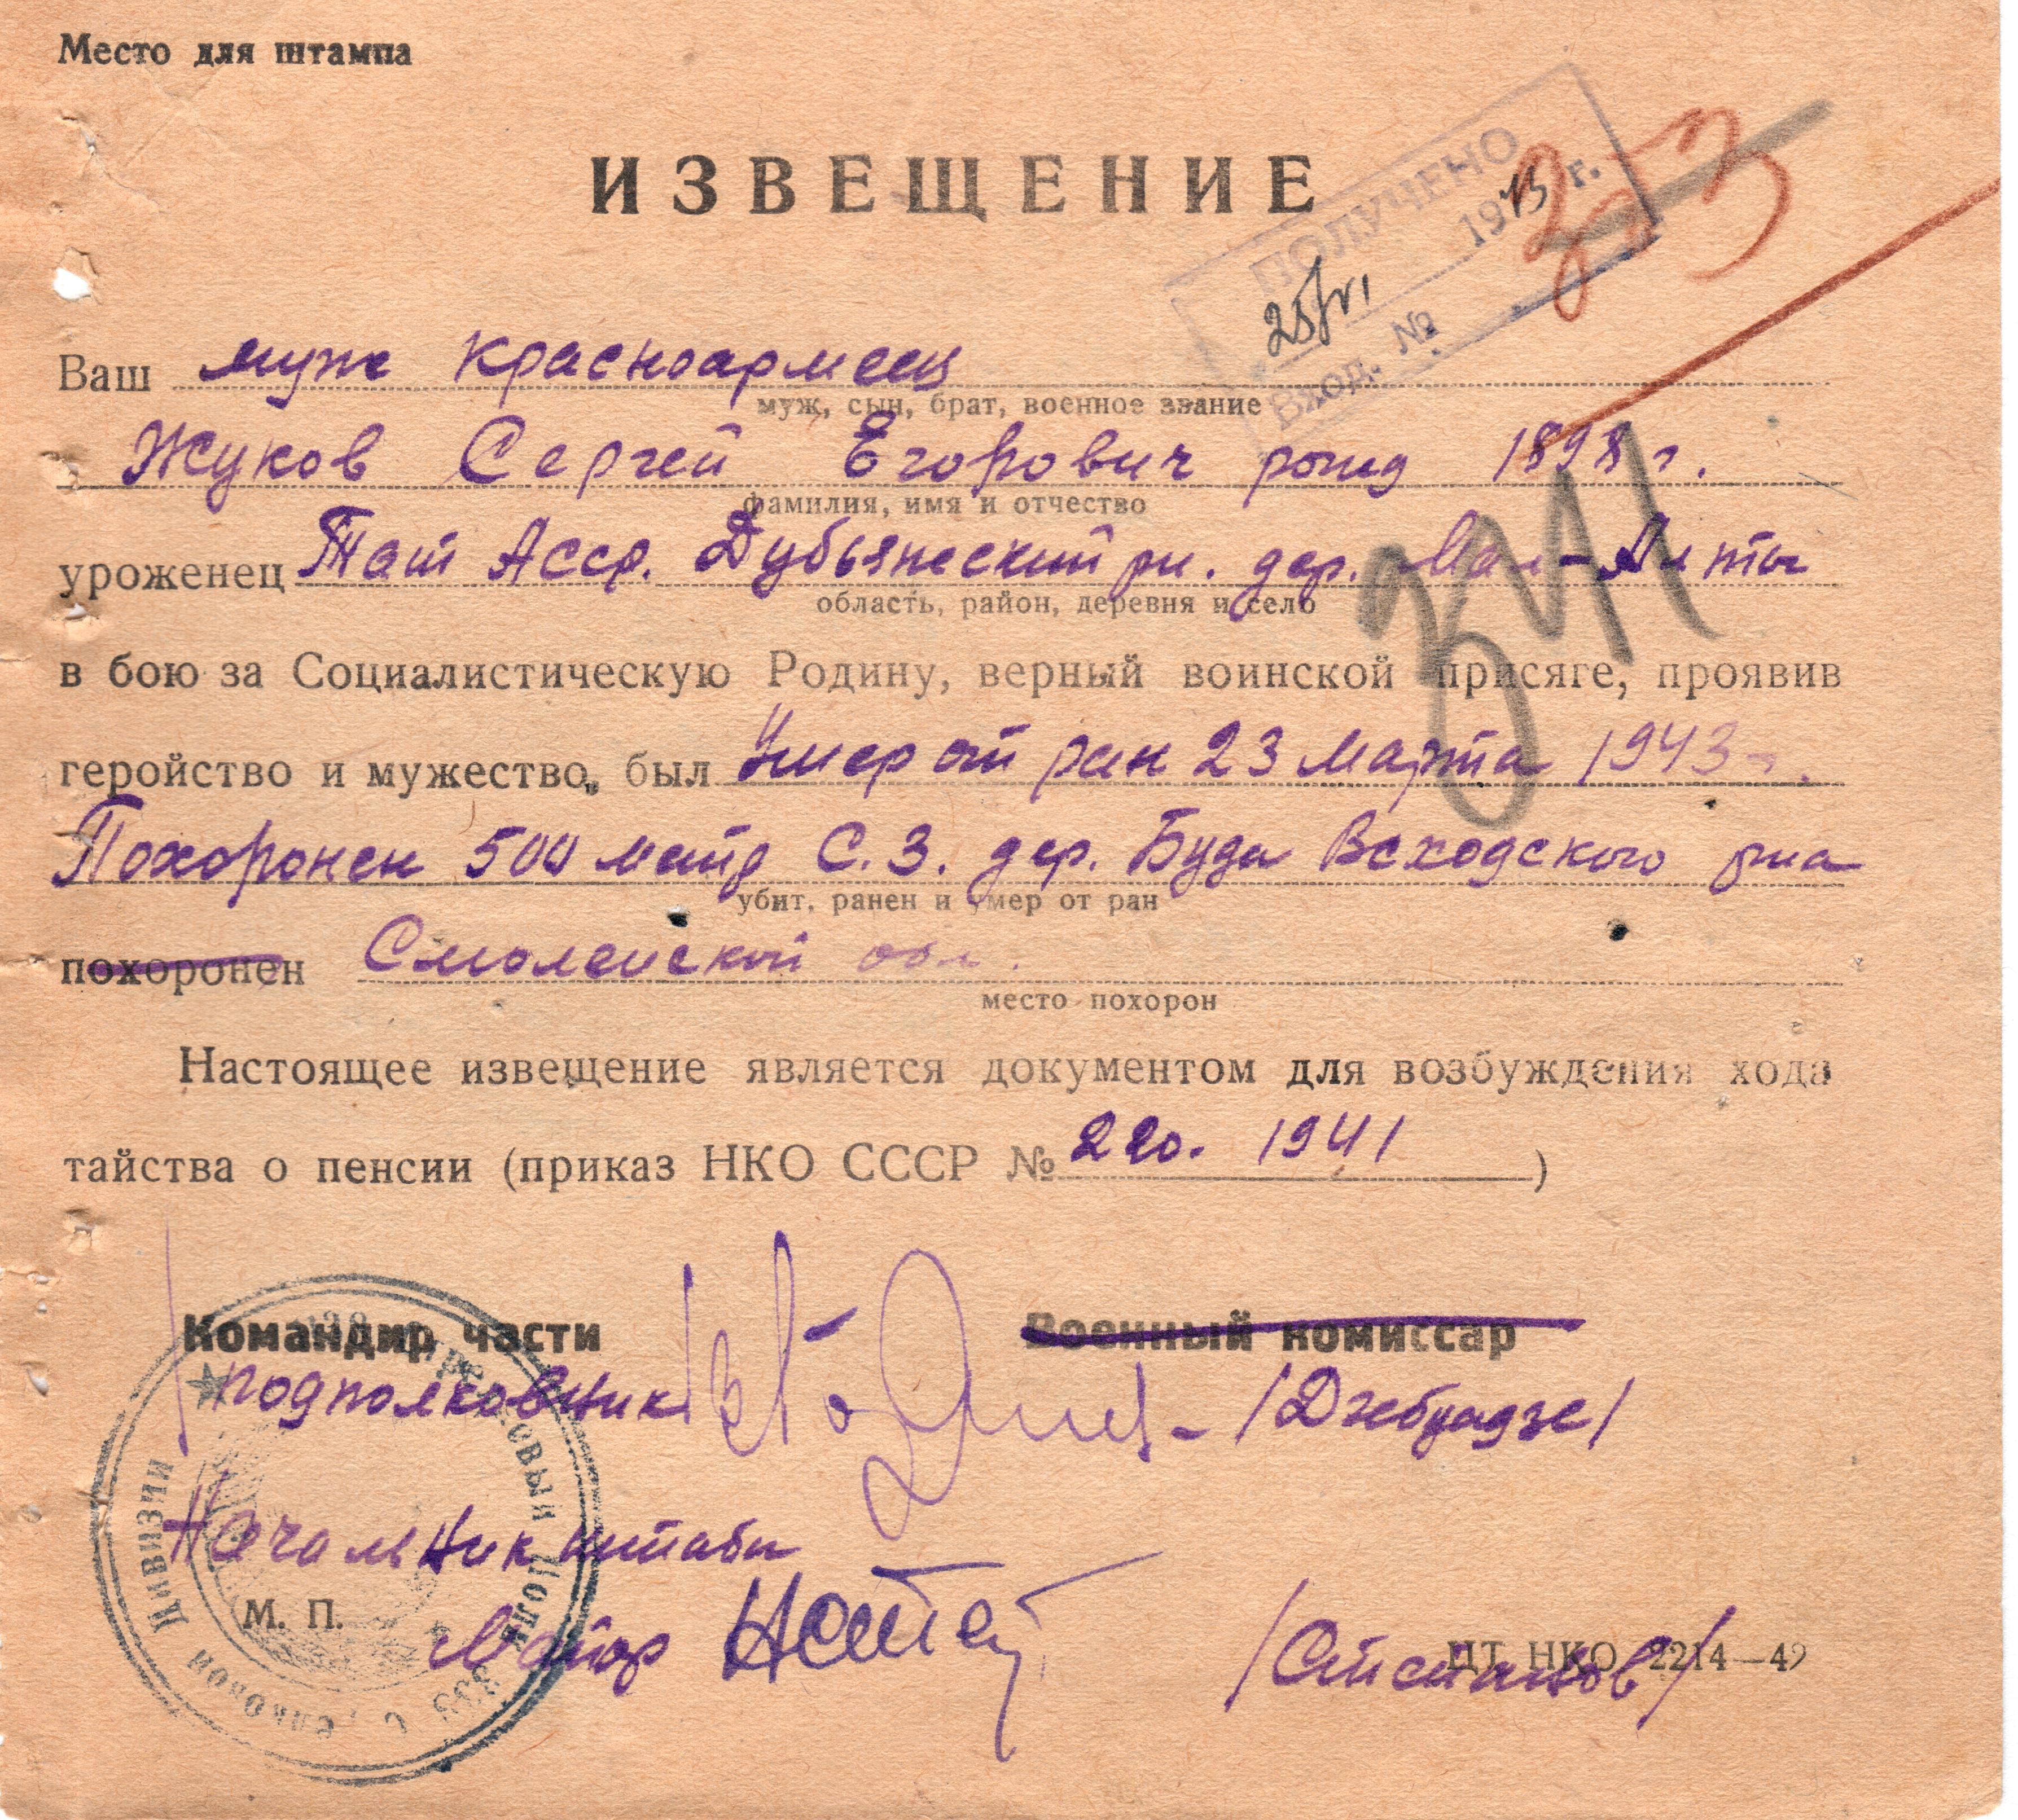 Место для штампа
ИЗВЕЩЕНИЕ
ПОЛУЧЕНО
25/VI 1943 г.
Вход. №
3-3
Ваш муж красноармеец
муж, сын, брат, военное звание
Жуков Сергей Егорович рожд 1898 г.
фамилия, имя и отчество
уроженец Тат Асср. Дубьязский рн. дер. Мал-
область, район, деревня и село
в бою за Социалистическую Родину, верный воинской присяге, проявив
геройство и мужество, был Умер от ран 23 марта 1943 г.
Похоронен 500 метр С.З. дер. Буда Всходского р-на
убит, ранен и умер от ран
похоронен Смоленской обл.
место похорон
Настоящее извещение является документом для возбуждения хода
тайства о пенсии (приказ НКО СССР № 220. 1941)
Командир части Военный комиссар
подполковник
Начальник штаба
М. П.
Майор
ЦТ НКО 2214—42
Стрелковый Полк
Стрелковой Дивизии